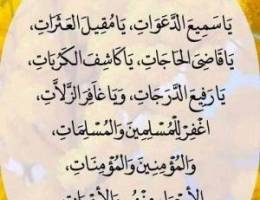 يَا سَمِيعَ الدَّعَوَاتِ، يَا مُقِيلَ العَثَرَاتِ،
يَا قَاضِىَ الحَاجَاتِ، يَا كَاشِفَ الكَرُبَاتِ،
يَا رَفِيعَ الدَّرَجَاتِ، وَيَا غَافِرَ الزَّلاَّتِ،
اغْفِرْ لِلْمُسْلِمِينَ وَالْمُسْلِمَاتِ،
وَالْمُؤْمِنِينَ وَالْمُؤْمِنَاتِ،